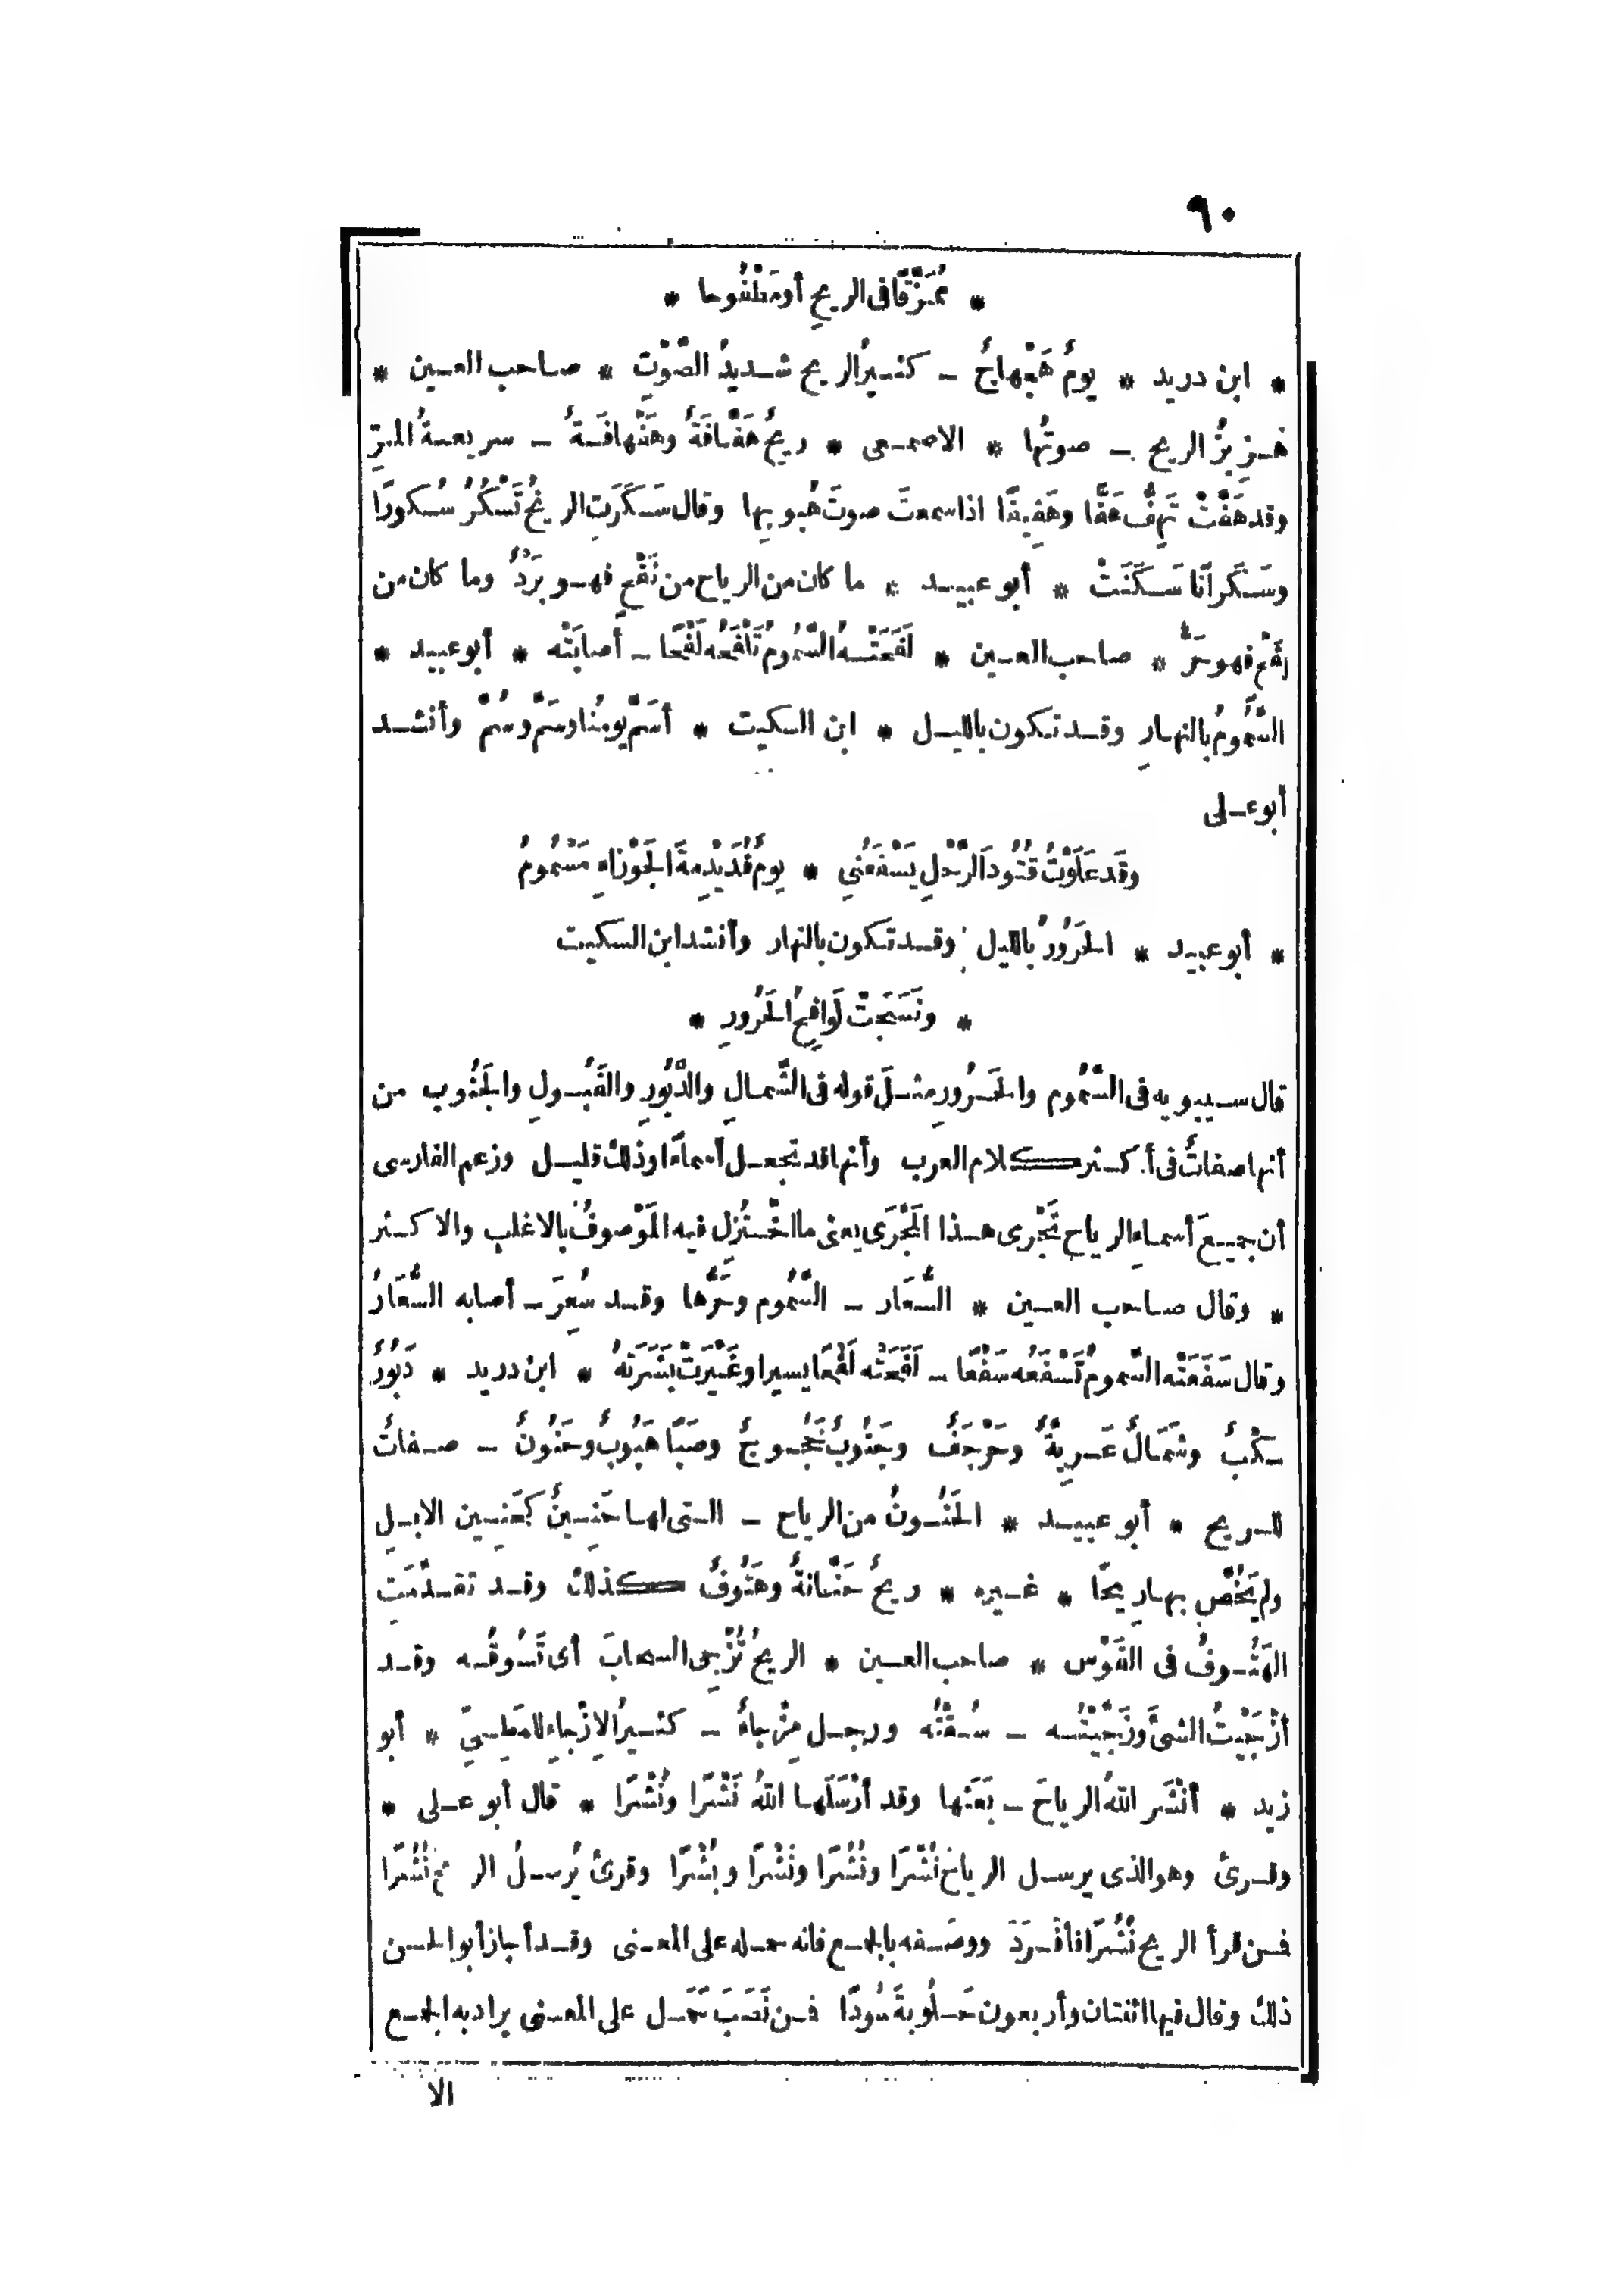 ٩٠
* مُمَزَّقًا فى الريحِ أو مَطْلْفُوحا *
* ابن دريد * يومٌ هَجْهاجٌ - كثيرُ الريح شديدُ الصَّوْتِ * صاحب العين *
هَزِيزُ الريح - صوتُها * الاصمعى * ريحٌ هَفَّافَةٌ وهَفْهافَةٌ - سريعةُ المَرِّ
وقد هَفَّتْ تَهِفُّ هَفًّا وهَفِيفًا اذا سمعتَ صوتَ هُبوبِها وقال سَكَرَتِ الريحُ تَسْكُرُ سُكورًا
وسَكَرانًا سَكَنَتْ * أبو عبيد * ما كان من الرياح من نَفْحٍ فهو بَرْدٌ وما كان من
لَفْحٍ فهو حَرٌّ * صاحب العين * لَفَحَتْهُ السَّمُومُ تَلْفَحُه لَفْحًا - أصابَتْه * أبو عبيد *
السَّمُومُ بالنهارِ وقد تكون بالليل * ابن السكيت * أسَمَّ يومُنا وسَمَّ وسُمَّ وأنشد
أبو على
وقَد عَلَوْتُ قُتُودَ الرَّحْلِ يَسْفَعُنِي * يومٌ قُدَيْدِمةَ الجَوْزاءِ مَسْمُومُ
* أبو عبيد * الحَرُورُ بالليل وقد تكون بالنهار وأنشد ابن السكيت
* ونَسَجَتْ لَوافِحُ الحَرُورِ *
قال سيبويه فى السَّمُوم والحَرُورِ مثلَ قوله فى الشَّمالِ والدَّبُورِ والقَبُولِ والجَنُوب من
أنها صفاتٌ فى أكثر كلام العرب وأنها قد تجعل أسماءً وذلك قليل وزعم الفارسى
أن جميعَ أسماءِ الرياحِ تَجْرِى هذا المَجْرَى يعنى ما اخْتُزِل فيه المَوْصوفُ بالاغلب والاكثر
* وقال صاحب العين * السُّعَار - السَّمُوم وحَرُّها وقد سُعِرَ - أصابه السُّعَارُ
وقال سَفَعَتْه السَّمومُ تَسْفَعُه سَفْعًا - لَفَحَتْه لَفْحًا يسيرا وغَيَّرَتْ بَشَرَتَهُ * ابن دريد * دَبُورٌ
نَكْبٌ وشَمَالٌ عَرِيَّةٌ وحَرْجَفٌ وجَنُوبٌ خَجُوجٌ وصَبًا هَبُوبٌ وحَنُونٌ - صفاتٌ
للريح * أبو عبيد * الحَنُونُ من الرياح - التى لها حَنِينٌ كحَنِين الابلِ
ولم يَخُصَّ بها رِيحًا * غيره * ريحٌ حَنَّانةٌ وهَتُوفٌ كذلك وقد تقدَّمَتِ
الهَتُوفُ فى القَوْس * صاحب العين * الريحُ تُزْجِى السحابَ أى تَسُوقُه وقد
أزْجَيْتُ الشىَّ وزَجَّيْتُه - سُقْتُه ورجل مِزْجاءٌ - كثيرُ الاِزْجاءِ للمَطِىِّ * أبو
زيد * أنْشَر اللهُ الرياحَ - بَعَثَها وقد أرْسَلَها اللهُ نَشْرًا ونُشْرًا * قال أبو على *
وقرئ وهو الذى يرسل الرياحَ نُشُرًا ونُشْرًا ونَشْرًا وبُشْرًا وقرئ يُرسلُ الريحَ نُشُرًا
فمن قرأ الريح نُشُرًا فأفْرَدَ ووصَفه بالجمع فانه حمله على المعنى وقد أجاز أبو الحسن
ذلك وقال فيها اثنتان وأربعون حَلُوبةً سُودًا فمن نَصَبَ حَمَل على المعنى يراد به الجمع
الا